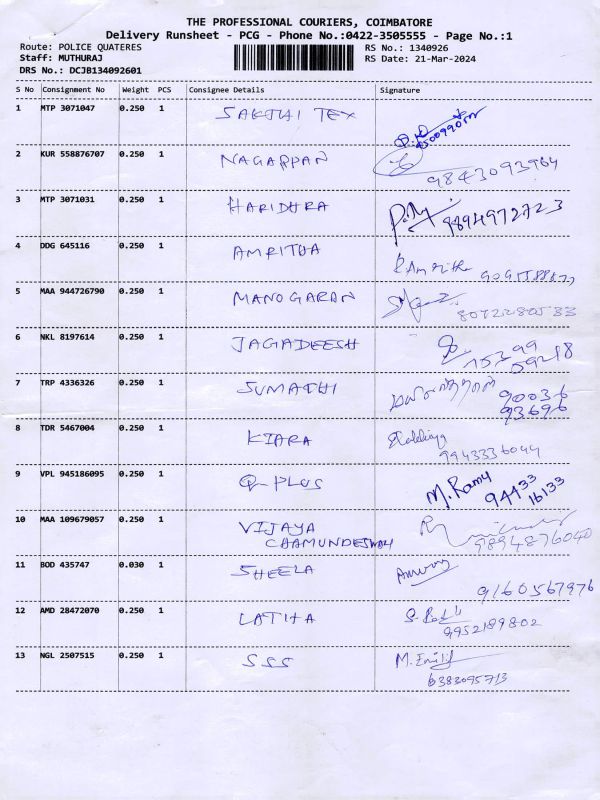 THE PROFESSIONAL COURIERS, COIMBATORE
Delivery Runsheet - PCG - Phone No.:0422-3505555 - Page No.:1
Route: POLICE QUATERES RS No.: 1340926
Staff: MUTHURAJ RS Date: 21-Mar-2024
DRS No.: DCJB134092601
S No Consignment No Weight PCS Consignee Details Signature
1 MTP 3071047 0.250 1 SAKTHI TEX
2 KUR 558876707 0.250 1 NAGAPPAN
9843093964
3 MTP 3071031 0.250 1 HARIDHRA 9894972723
4 DDG 645116 0.250 1 AMRITHA
5 MAA 944726790 0.250 1 MANOGARAN
8072280533
6 NKL 8197614 0.250 1 JAGADEESH 75399
59218
7 TRP 4336326 0.250 1 SUMATHI 90036
93696
8 TDR 5467004 0.250 1 KIARA
9943336044
9 VPL 945186095 0.250 1 Q-PLUS M. Ramy 94433
16133
10 MAA 109679057 0.250 1 VIJAYA
CHAMUNDESWARI 9894876040
11 BOD 435747 0.030 1 SHEELA
9160567976
12 AMD 28472070 0.250 1 LATHA
9952189802
13 NGL 2507515 0.250 1 SSS
6383095713